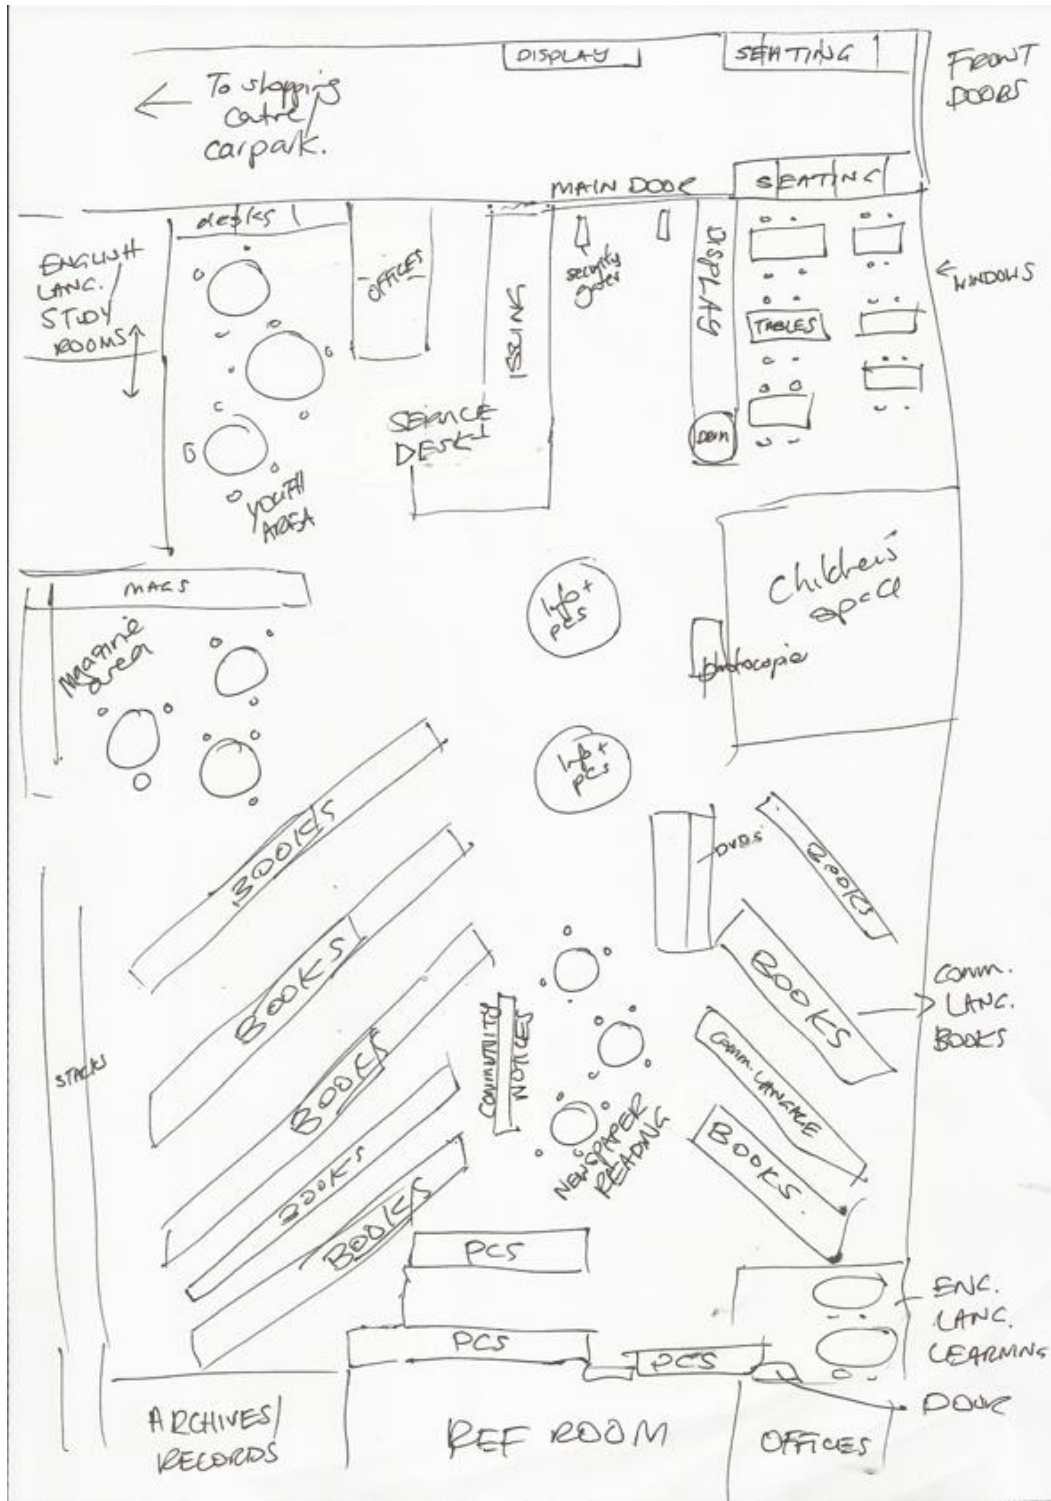 DISPLAY
SEATING
FRONT
DOORS
To shopping
centre/
carpark.
MAIN DOOR
SEATING
desks
ENGLISH
LANG.
STUDY
ROOMS
OFFICES
ISSUING
security
gates
DISPLAY
TABLES
WINDOWS
SERVICE
DESK
YOUTH
AREA
MAGS
Magazine
area
Info +
pcs
Children's
space
photocopier
Info +
pcs
BOOKS
DVDs
BOOKS
BOOKS
BOOKS
COMM.
LANG.
BOOKS
STACKS
BOOKS
COMMUNITY
NOTICES
COMM. LANGAGE
BOOKS
NEWSPAPER
READING
BOOKS
BOOKS
PCS
PCS
PCS
ENG.
LANG.
LEARNING
DOOR
ARCHIVES/
RECORDS
REF ROOM
OFFICES